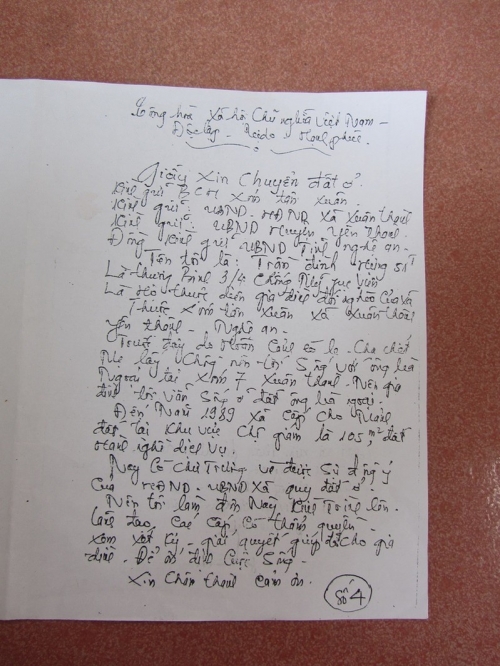 Cộng hòa Xã hội Chủ nghĩa Việt Nam -
Độc lập - Tự do Hạnh phúc.
Giấy Xin Chuyển đất ở.
Kính gửi BCH Xóm tân Xuân.
Kính gửi: UBND - HĐND Xã Xuân thành
Kính gửi: UBND Huyện Yên thành.
Đồng kính gửi UBND Tỉnh Nghệ an -
Tên tôi là: Trần đình Hùng 51T
Là thương binh 3/4. Chống Mỹ
Là Hộ thuộc diện gia đình đói nghèo của xã
Thuộc Xóm tân Xuân Xã Xuân thành
Yên thành - Nghệ an -
Trước đây do Hoàn cảnh - Cha chết
Mẹ lấy Chồng nên tôi Sống với ông bà
Ngoại tại Xóm 7 - Xuân thành - Nên gia
đình tôi vẫn Sống ở đất ông bà ngoại.
Đến Năm 1989 Xã Cấp cho Mảnh
đất tại Khu vực là 105, m² đất
Hành nghề dịch vụ.
Nay Có Chủ Trương và được Sự đồng ý
Của HĐND - UBND Xã quy đất ở
Nên tôi làm đơn Này Kính Trình lên.
Lãnh đạo, Các Cấp Có thẩm quyền -
Xem xét giải quyết giúp đỡ cho gia
đình - Để ổn định Cuộc Sống -
Xin Chân thành Cảm ơn.
Số 4